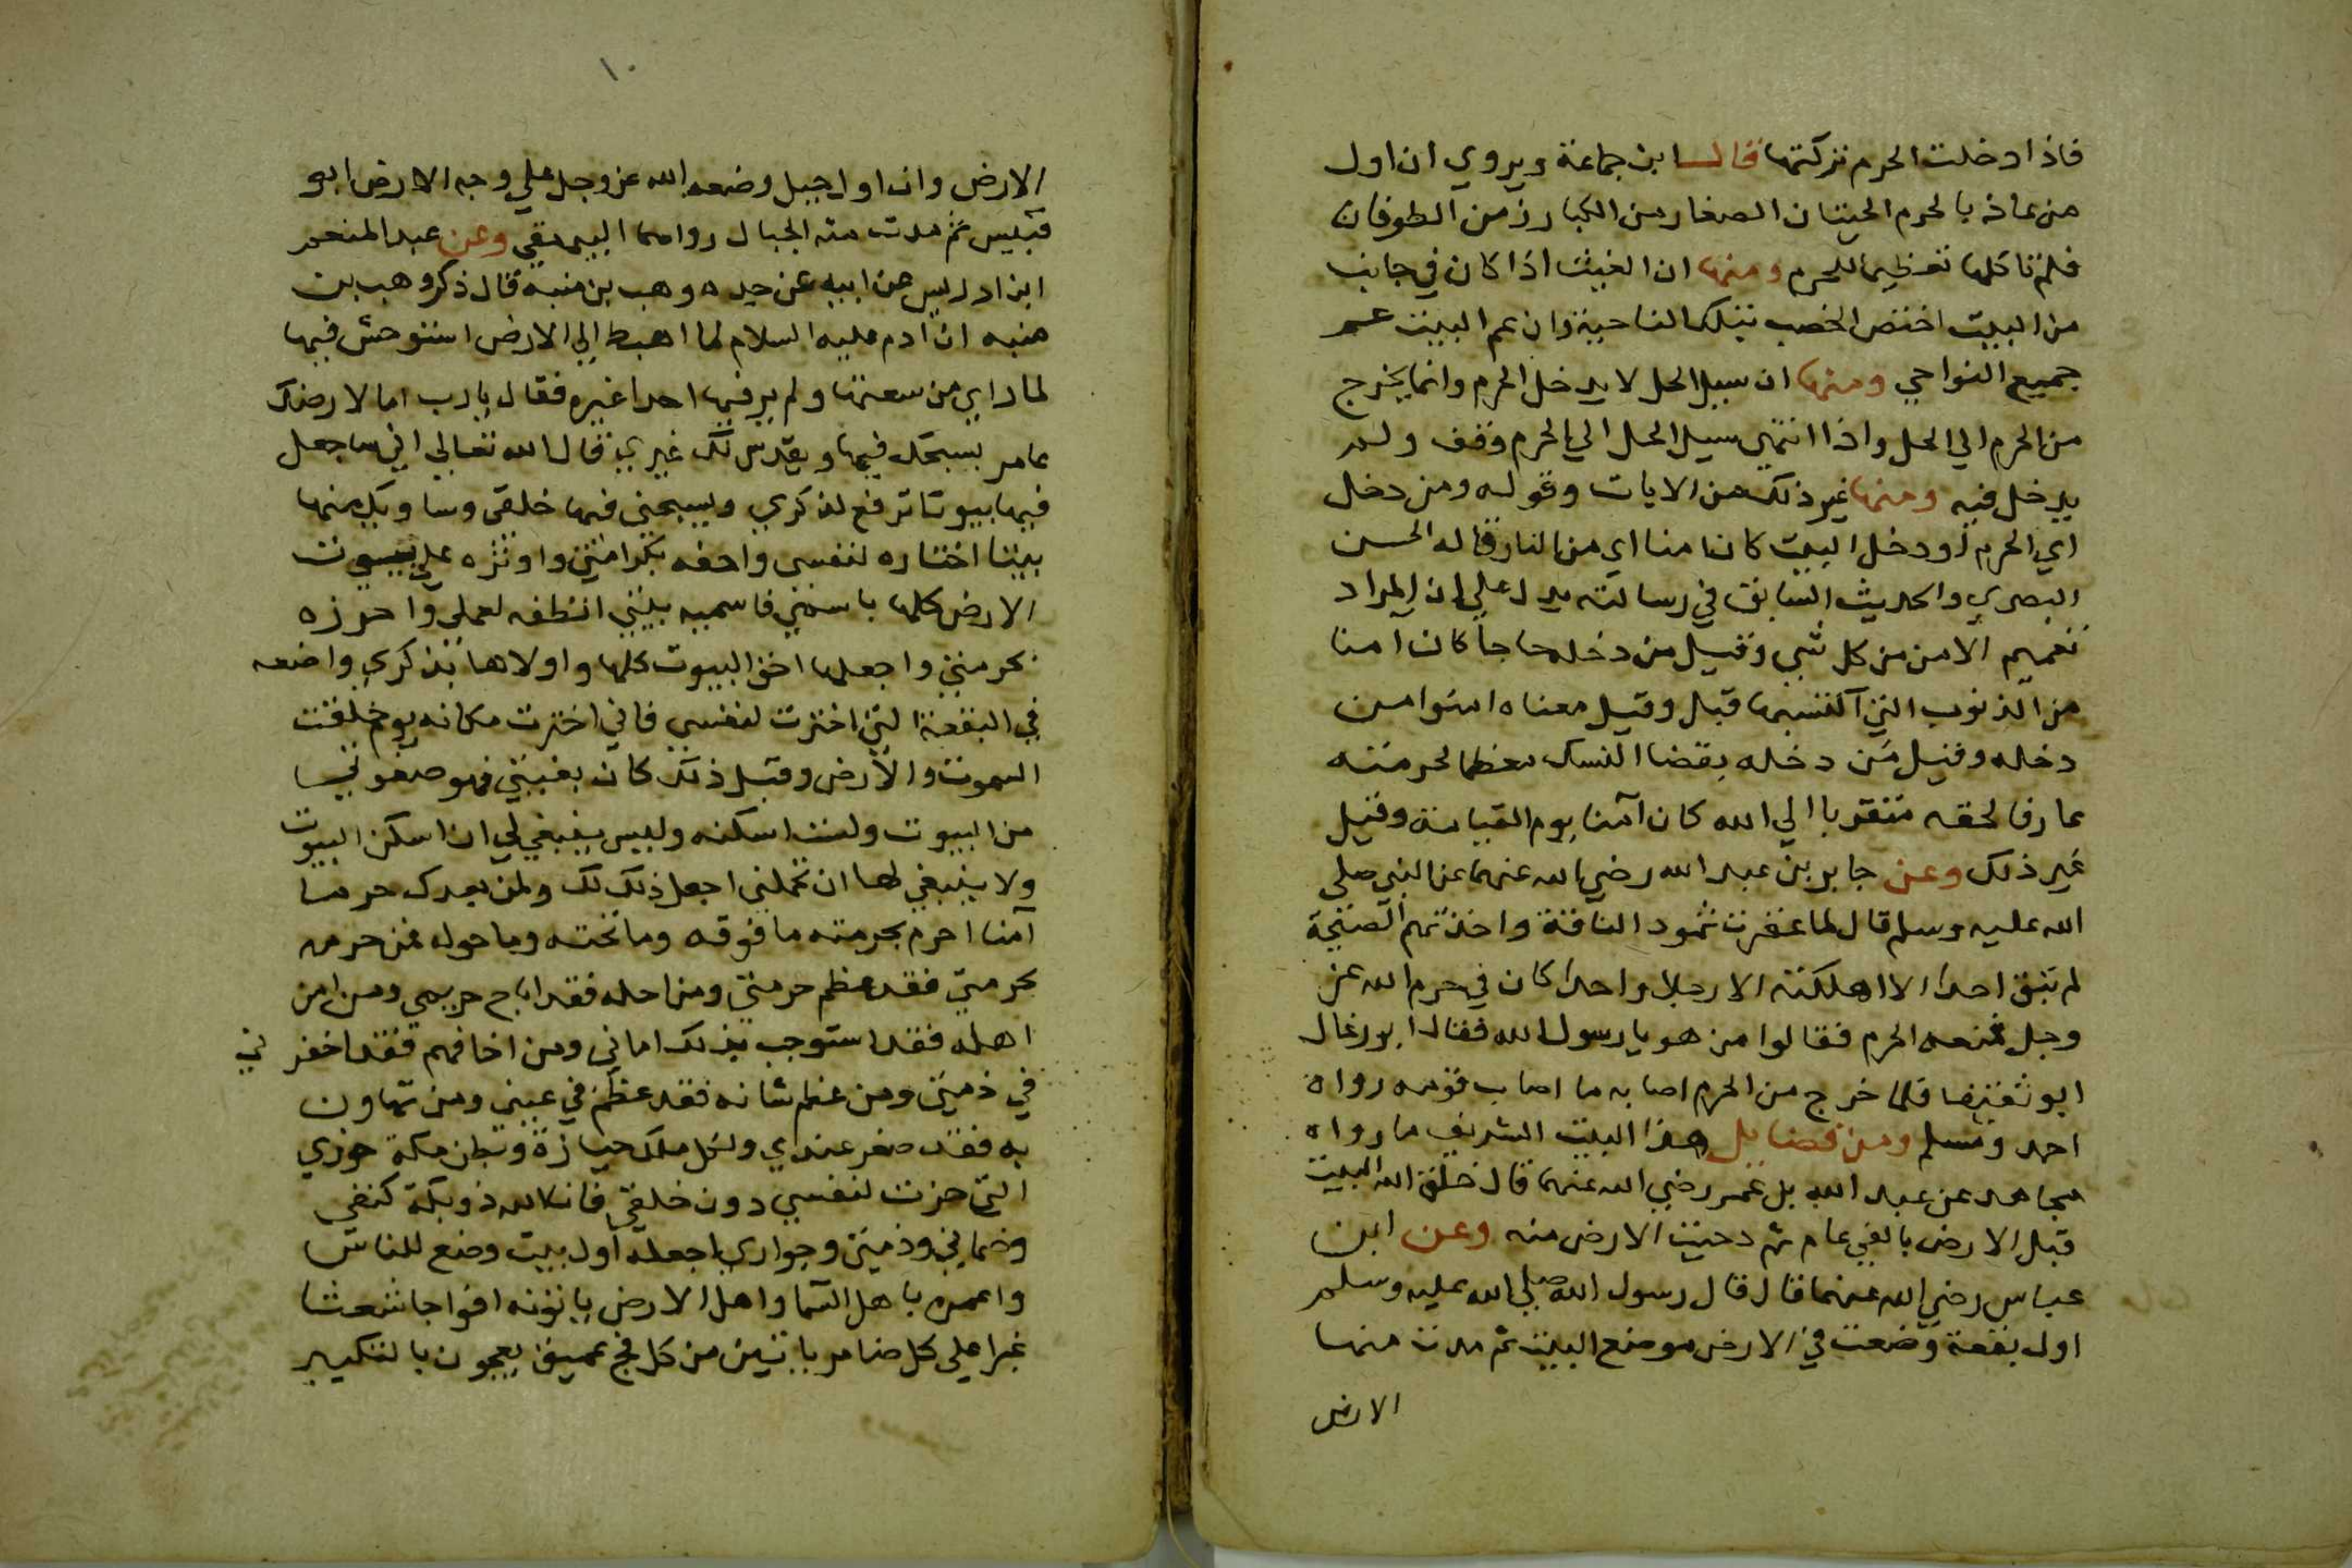 فاذا دخلت الحرم تركتها قال ابن جماعة ويروي ان اول
من عاذ بالحرم الحيتان الصغار من الكبار زمن الطوفان
فلم تاكلها تعظيما للحرم ومنها ان الغيث اذا كان في جانب
من البيت اختص الخصب بتلك الناحية وان عم البيت عم
جميع النواحي ومنها ان سيل الحل لا يدخل الحرم وانما يخرج
من الحرم الي الحل واذا انتهي سيل الحل الي الحرم وقف ولم
يدخل فيه ومنها غير ذلك من الايات وقوله ومن دخل
اي الحرم او دخل البيت كان امنا اي من النار قاله الحسن
البصري والحديث السابق في رسالته يدل علي ان المراد
تعميم الامن من كل شي وقيل من دخله حاجا كان امنا
من الذنوب التي اكتسبها قبل وقيل معناه امنوا من
دخله وقيل من دخله بقضا النسك معظما لحرمته
عارفا لحقه متقربا الي الله كان آمنا يوم القيامة وقيل
غير ذلك وعن جابر بن عبد الله رضي الله عنهما عن النبي صلي
الله عليه وسلم قال لما عقرت ثمود الناقة واخذتهم الصيحة
لم تبق احدا الا اهلكته الا رجلا واحدا كان في حرم الله عز
وجل فمنعه الحرم فقالوا من هو يا رسول الله فقال ابو رغال
ابو ثقيف فلما خرج من الحرم اصابه ما اصاب قومه رواه
احمد ومسلم ومن فضايل هذا البيت الشريف ما رواه
مجاهد عن عبد الله بن عمر رضي الله عنهما قال خلق الله البيت
قبل الارض بالفي عام ثم دحيت الارض منه وعن ابن
عباس رضي الله عنهما قال قال رسول الله صلي الله عليه وسلم
اول بقعة وضعت في الارض موضع البيت ثم مدت منها
الارض
١٠
الارض وان اول جبل وضعه الله عز وجل علي وجه الارض ابو
قبيس ثم مدت منه الجبال رواهما البيهقي وعن عبد المنعم
ابن ادريس عن ابيه عن جده وهب بن منبه قال ذكر وهب بن
منبه ان ادم عليه السلام لما اهبط الي الارض استوحش فيها
لما راي من سعتها ولم ير فيها احدا غيره فقال يا رب اما لارضك
عامر يسبحك فيها ويقدس لك غيري قال الله تعالي اني ساجعل
فيها بيوتا ترفع لذكري ويسبحني فيها خلقي وسا منها
بيتا اختاره لنفسي واخصه بكرامتي واوثره علي بيوت
الارض كلها باسمي فاسميه بيتي انطقه لعملي واحرزه
بحرمتي واجعلها احق البيوت كلها واولاها بذكري واضعه
في البقعة التي اخترت لنفسي فاني اخترت مكانه يوم خلقت
السموت والارض وقبل ذلك كان بغيتي فهو صفوتي
من البيوت ولست اسكنه وليس ينبغي لي ان اسكن البيوت
ولا ينبغي لها ان تحملني اجعل ذلك لك ولمن بعدك حرما
آمنا احرم بحرمته ما فوقه وما تحته وما حوله فمن حرمه
بحرمتي فقد عظم حرمتي ومن احله فقد اباح حريمي ومن امن
اهله فقد استوجب بذلك اماني ومن اخافهم فقد اخفرني
في ذمتي ومن عظم شانه فقد عظم في عيني ومن تهاون
به فقد صغر عندي ولكل ملك حيازة وبطن مكة حوزي
التي حزت لنفسي دون خلقي فانا الله ذو بكة كنفي
وضماني وذمتي وجواري اجعله اول بيت وضع للناس
واعمره باهل السما واهل الارض ياتونه افواجا شعثا
غبرا علي كل ضامر ياتين من كل فج عميق يعجون بالتكبير